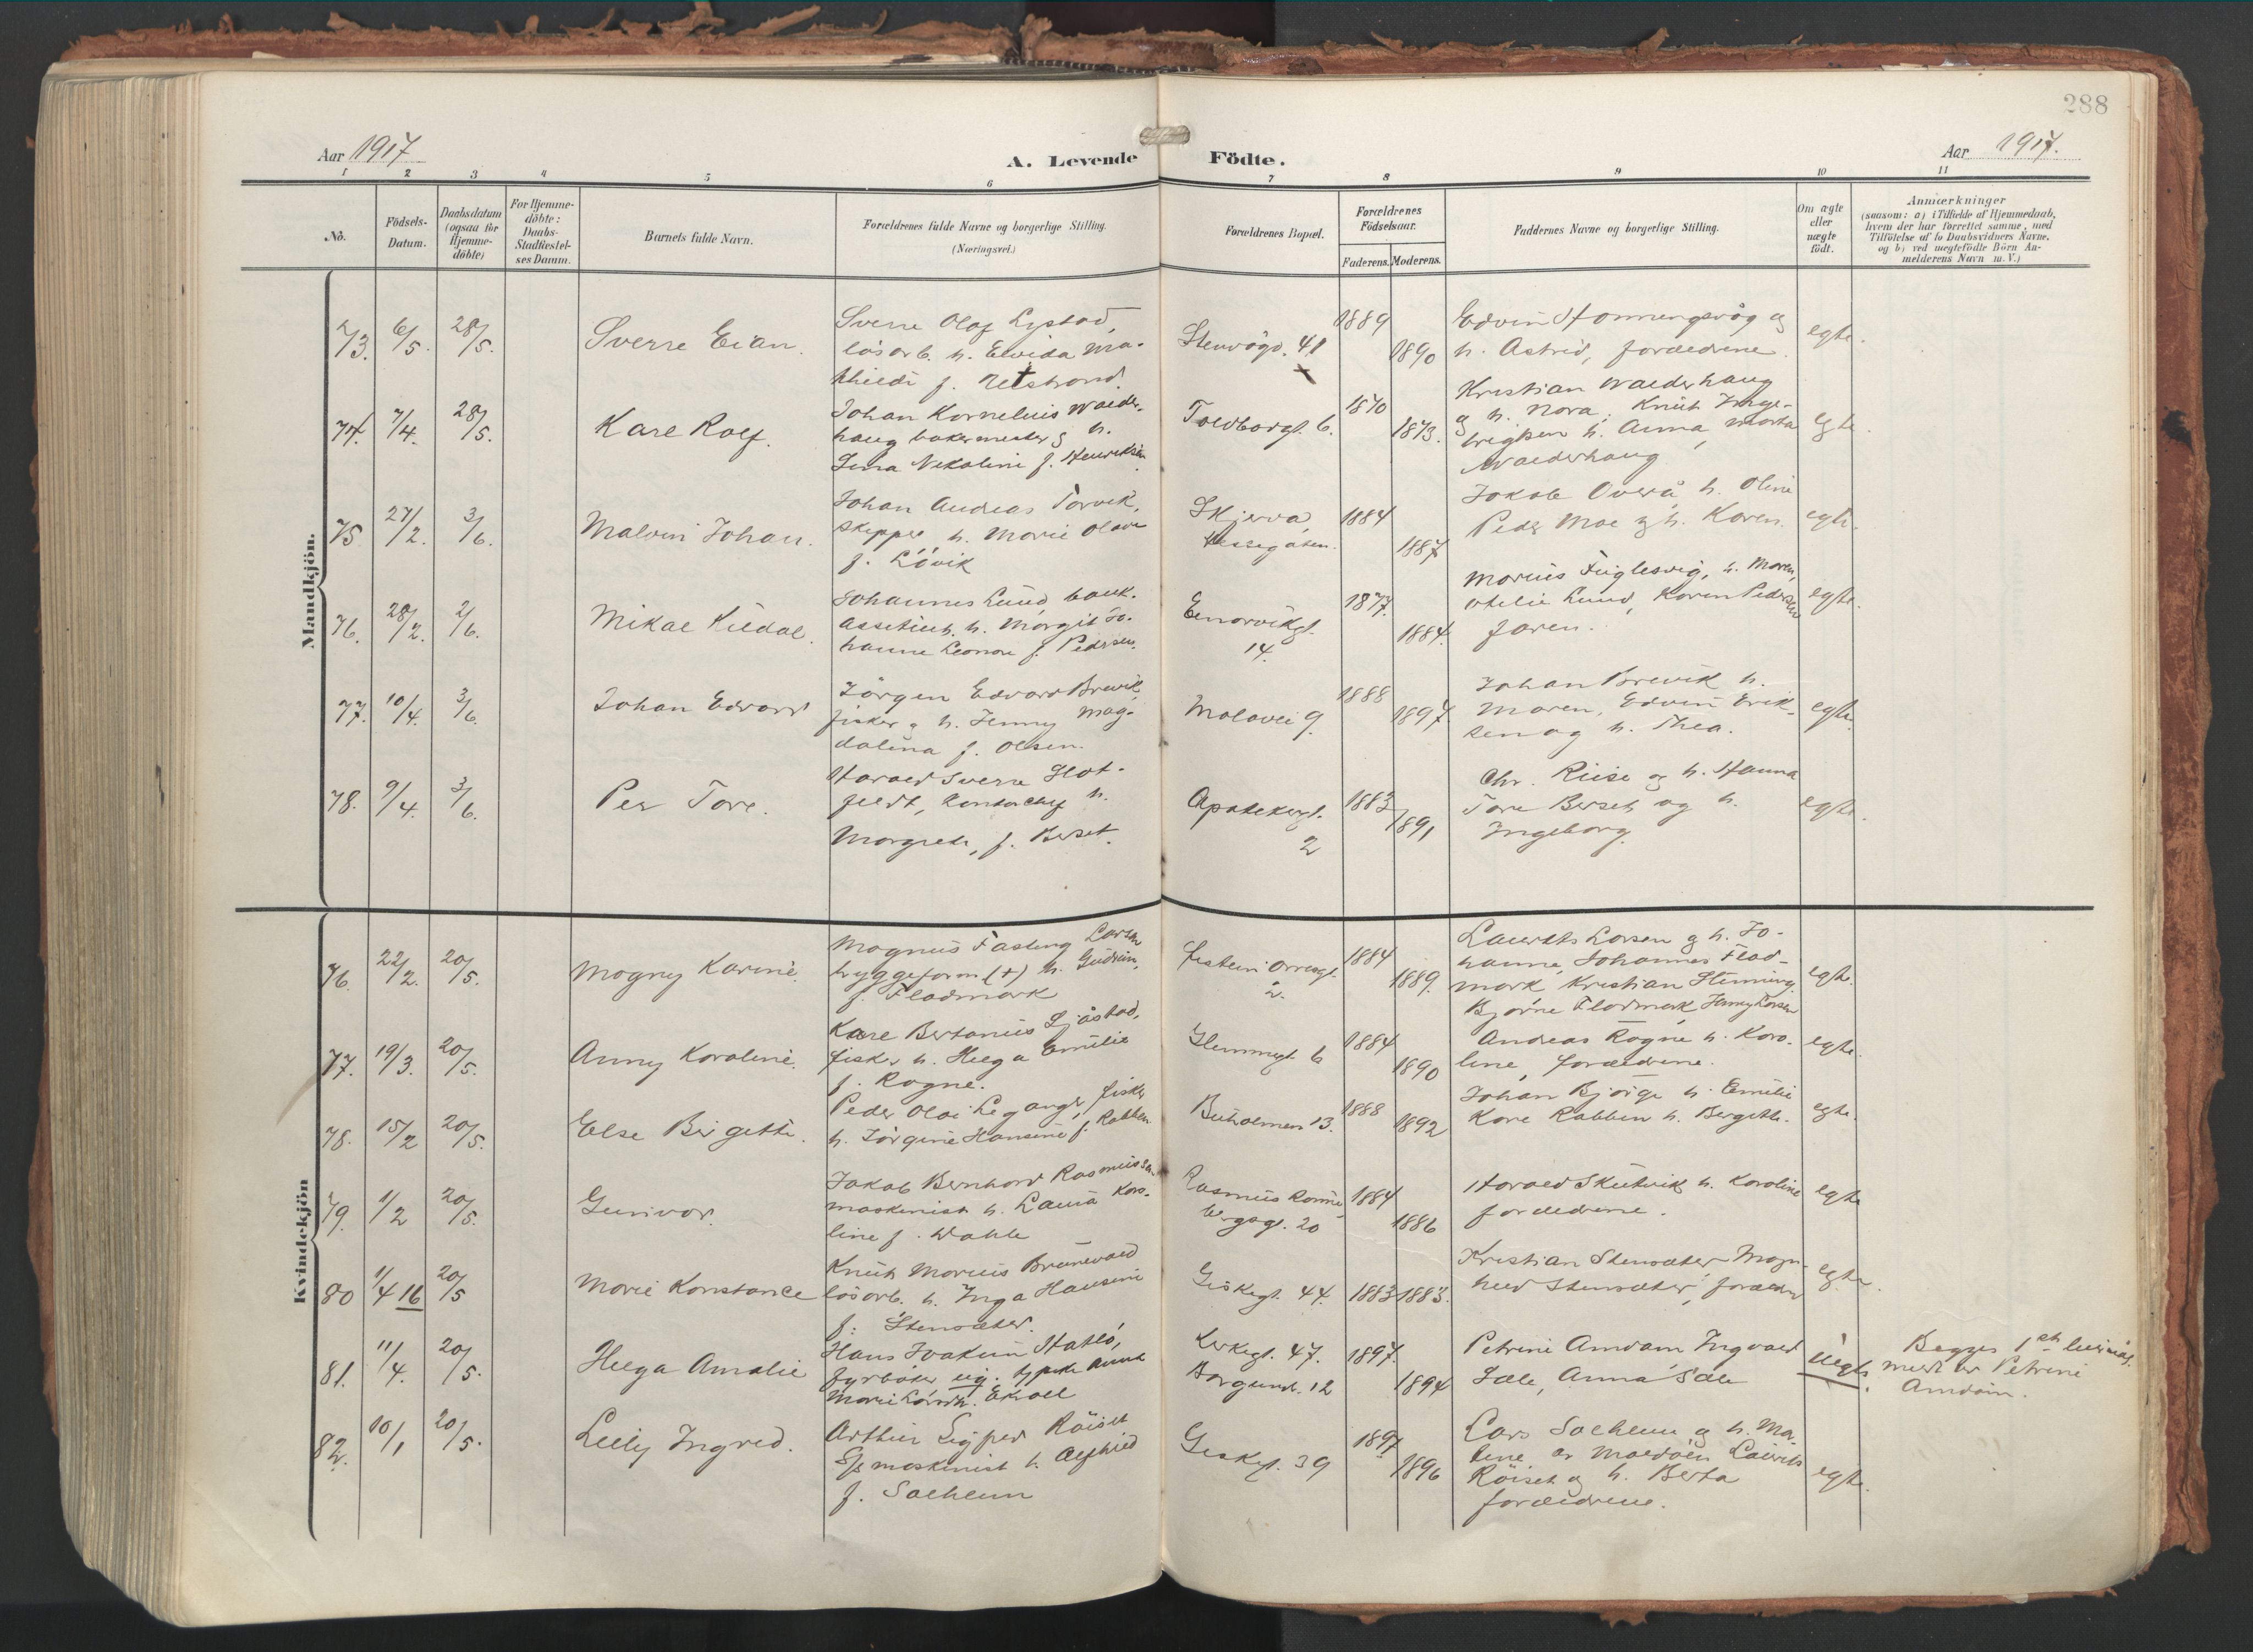 288
Aar 1917
A. Levende
Födte.
Aar 1917.
1 2 3 4 5 6 7 8 9 10 11
No.
Födsels-
Datum.
Daabsdatum
(ogsaa for
Hjemme-
döbte)
For Hjemme-
döbte:
Daabs-
Stadfæstel-
ses Datum.
Barnets fulde Navn.
Forældrenes fulde Navne og borgerlige Stilling.
(Næringsvei.)
Forældrenes Bopæl.
Forældrenes
Födselsaar.
Faderens. Moderens.
Faddernes Navne og borgerlige Stilling.
Om ægte
eller
uægte
födt.
Anmærkninger
(saasom: a) i Tilfælde af Hjemmedaab,
hvem der har forrettet samme, med
Tilföielse af to Daabsvidners Navne,
og b) ved uægtefödte Börn An-
melderens Navn m. V.)
Mandkjön.
73. 6/5. 28/5.
Sverre Eian.
Sverre Olaf Lystad,
lösarb. h. Elvida Ma-
thilde f. Utstrand.
Stenvågv. 41
1889
1890
Edvin Honningsvåg og
h. Astrid, foreldrene.
egte.
74. 7/4. 28/5.
Kare Rolf.
Johan Kornelius Walder-
haug bakermester og h.
Lina Nikoline f. Henriksen
Toldbodgt. 6.
1870
1873.
Kristian Walderhaug
og h. Nora, Knut Inge-
brigtsen h. Anna, Marta
Walderhaug
egte.
75 27/2. 3/6.
Malvin Johan.
Johan Andreas Torvik,
skipper h. Marie Olave
f. Lövik
Skjerva,
Hessegaten.
1884
1887
Jakob Överå h. Oline
Peder Moe og h. Karen.
egte.
76. 28/2. 2/6.
Mikal Kildal.
Johannes Lund, bank-
assistent h. Margit Jo-
hanne Leonore f. Pedersen.
14.
1877.
1884.
Marius Fuglesvig, h. Maren,
Otelie Lund, Karen Pedersen
faren.
egte.
77. 10/4. 3/6.
Johan Edvard
Jörgen Edvard Brevik,
fisker og h. Jenny Mag-
dalena f. Olsen.
Molovei 9.
1888
1897.
Johan Brevik h.
Maren, Edvin Erik-
sen og h. Thea.
egte.
78. 9/4. 3/6.
Per Tore.
Harald Sverre Slot-
feldt, kontorchef h.
Margrete, f. Berset.
Apotekergt.
2
1883
1891
Chr. Riise og h. Hanna
Tore Berset og h.
Ingeborg.
egte.
Kvindekjön
76. 22/2. 20/5.
Magny Karine.
Magnus Fasting Larsen
bryggeform. (+) h. Gudrun,
f. Fladmark
2.
1884
1889.
Laurits Larsen og h. Jo-
hanne, Johannes Flad-
mark Kristian Flemming.
Bjarne Fladmark, Jenny Larsen
egte.
77. 19/3. 20/5.
Anny Karoline.
Kare Bertanius Sjåstad,
fisker h. Helga Emilie
f. Rogne.
1884
1890
Andreas Rogne h. Karo-
line, foreldrene.
egte.
78. 15/2 20/5.
Else Birgitte.
Peder Olai Legangr, fisker
h. Jörgine Hansine f. Rabben
Buholmen 13.
1888
1892
Johan Bjørge h. Emilie
Kare Rabben h. Bergitte.
egte.
79. 1/2 20/5.
Gunvor.
Jakob Bernhard Rasmussen
maskinist h. Laura Karo-
line f. Dahle
Rasmus Rönne-
bergsgt. 20
1884
1886
Harald Skutvik h. Karoline
foreldrene.
egte
80 1/4 16 20/5
Marie Konstance
Knut Marius Brunevold
lösarb. h. Inga Hansine
f. Stensæter.
Giskegt. 44.
1883 1883.
Kristian Stensæter Magn-
hild Stensæter, foreldr
egte.
81. 11/4. 20/5.
Helga Amalie
Hans Joakim Hatlö,
fyrböter ug. Anna
Marie Ekroll
Kirkegt. 47.
Borgundv. 12
1897.
1894
Petrine Amdam Ingvald
Sæle, Anna Sæle
uegte.
Begges 1ste
meld. er Petrine
Amdam.
82. 10/1 20/5.
Lilly Ingrid.
Arthur Sigfred Röiset
maskinist h. Alfhild
f. Solheim
Giskegt. 39
1897
1896
Lars Solheim og h. Ma-
line av Maldöen Laurits
Röiset og h. Berta
foreldrene.
egte.